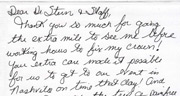 Dear Dr. Stein & Staff,
Thank you so much for going
the extra mile to see me before
working hours to fix my crown!
You extra care made it possible
for us to get to an event in
Nashville on time that day! And